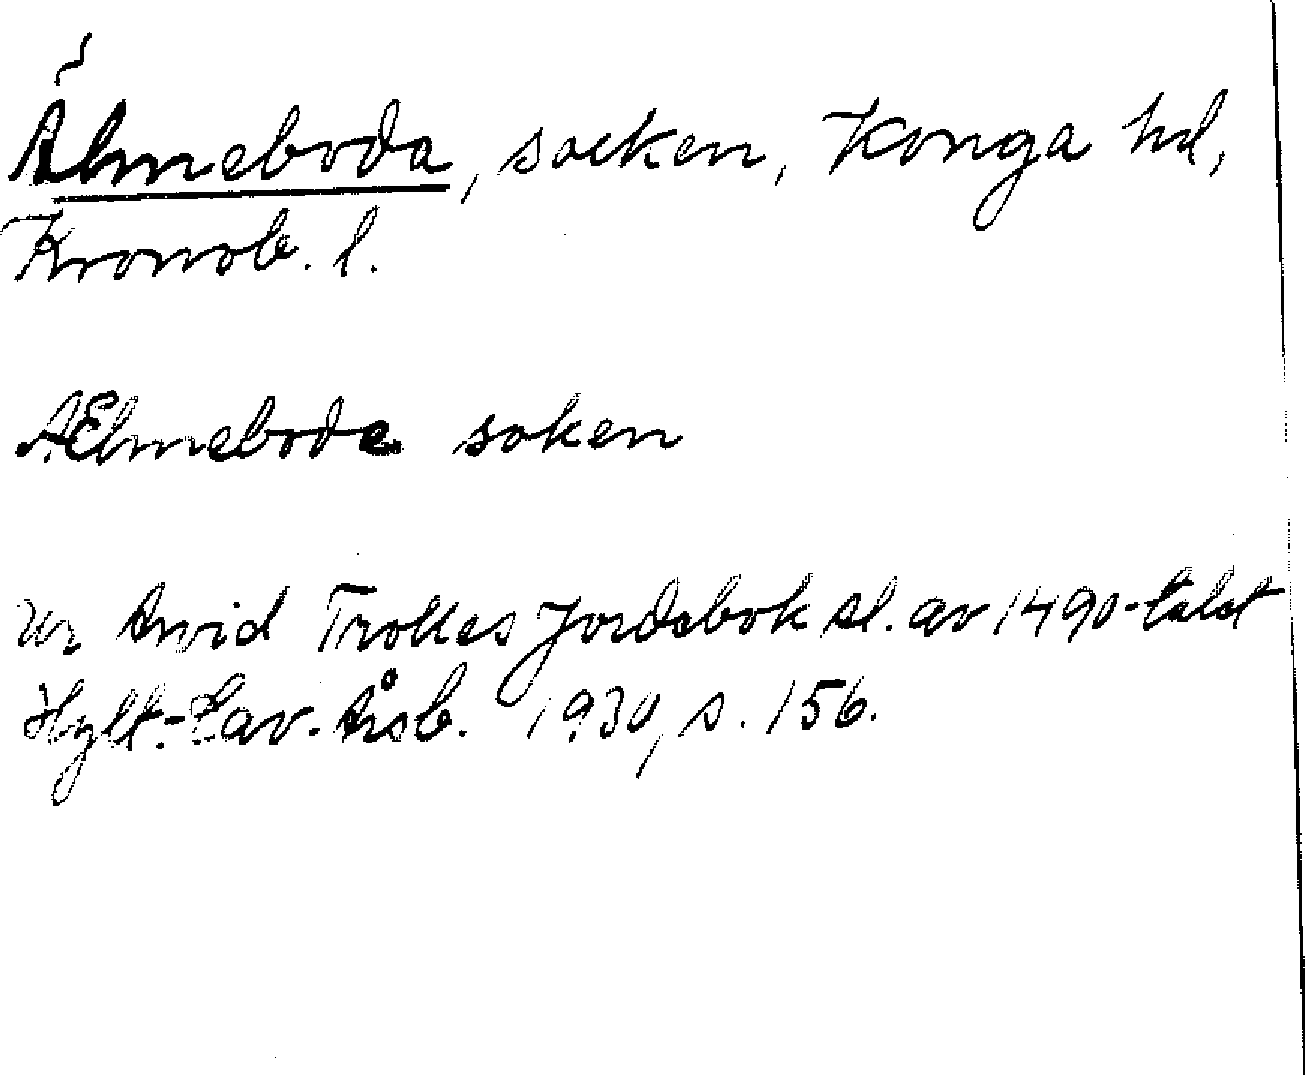 Älmeboda, socken, Konga hd,
Kronob. l.
AElmeboda soken
Ur Arvid Trolles Jordebok sl. av 1490-talet
Hylt.-Cav. Årsb. 1930, s. 156.